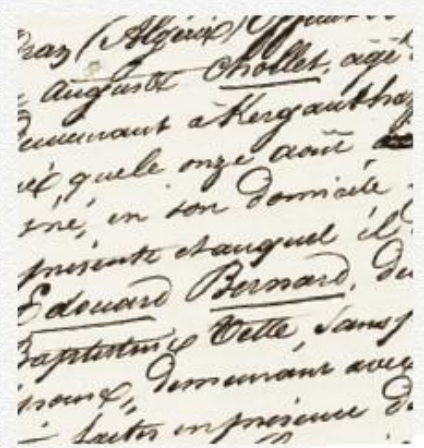 (Algérie)
Auguste Chollet, agé
demeurant à Kergauthraz
que le onze août
né, en son domicile
présente et auquel il
Edouard Bernard, de
Baptistine Vette, sans p
demeurant avec
faites en présence de